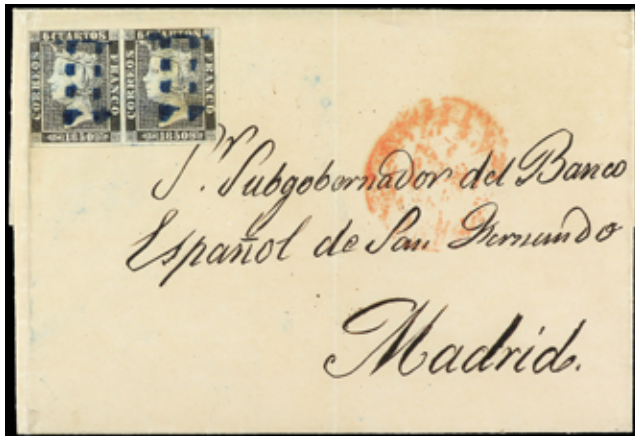 6 CUARTOS
CORREOS
FRANCO
1850
6 CUARTOS
CORREOS
FRANCO
1850
Sr. Subgobernador del Banco
Español de San Fernando
Madrid.